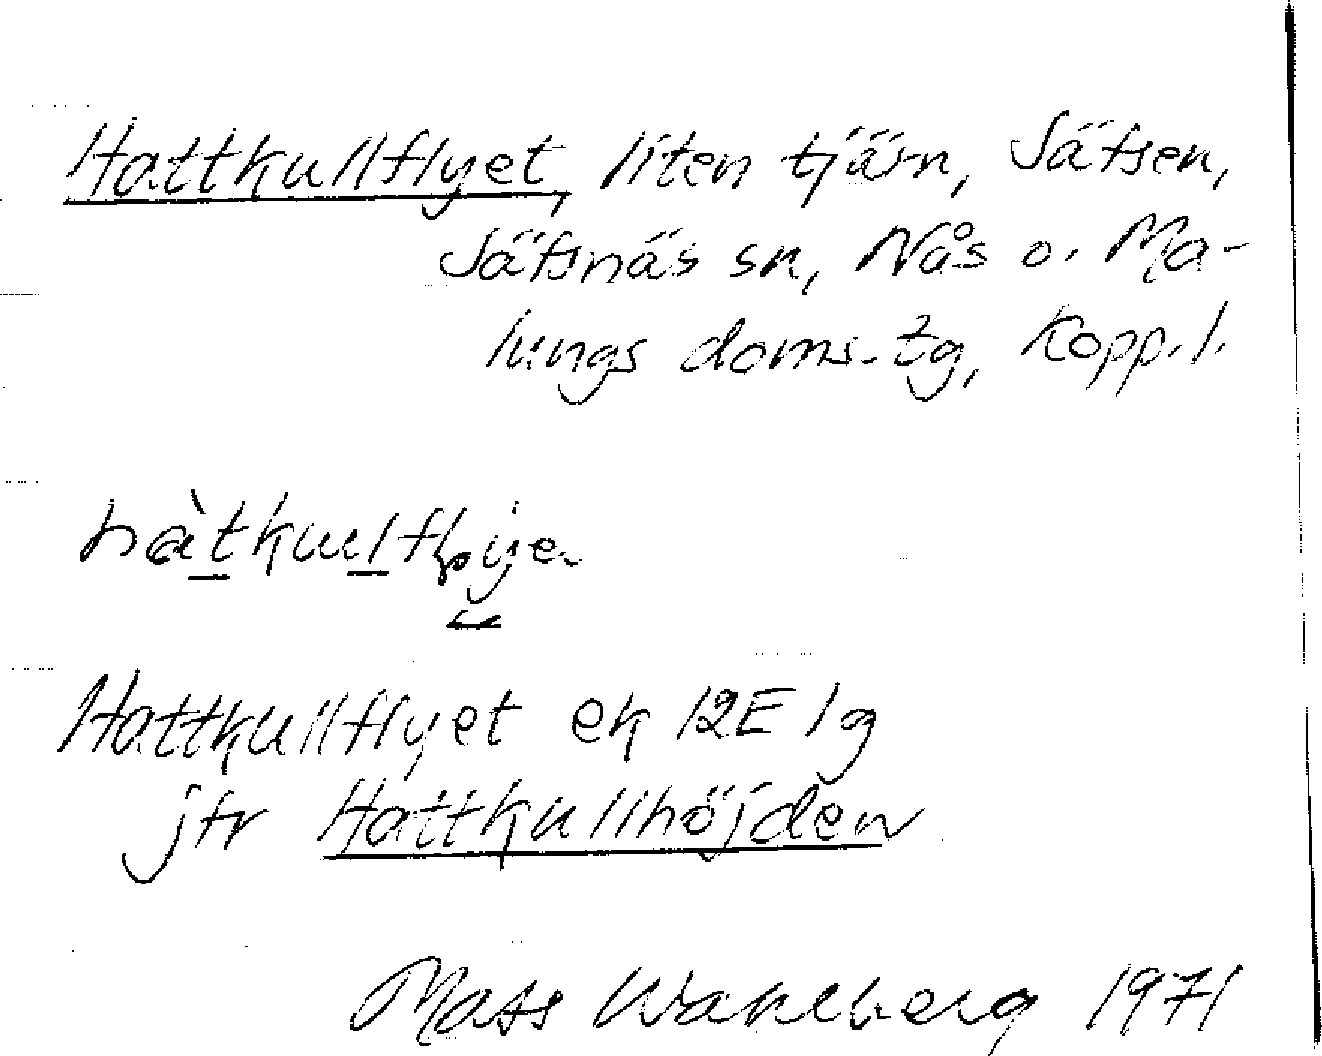 Hattkullflyet, liten tjärn, Säfsen,
Säfsnäs sn, Nås o. Ma-
lungs doms-tg, Kopp. l.
Hattkullflyet ek 12E 1g
jfr Hattkullhöjden
Mats Wahlberg 1971